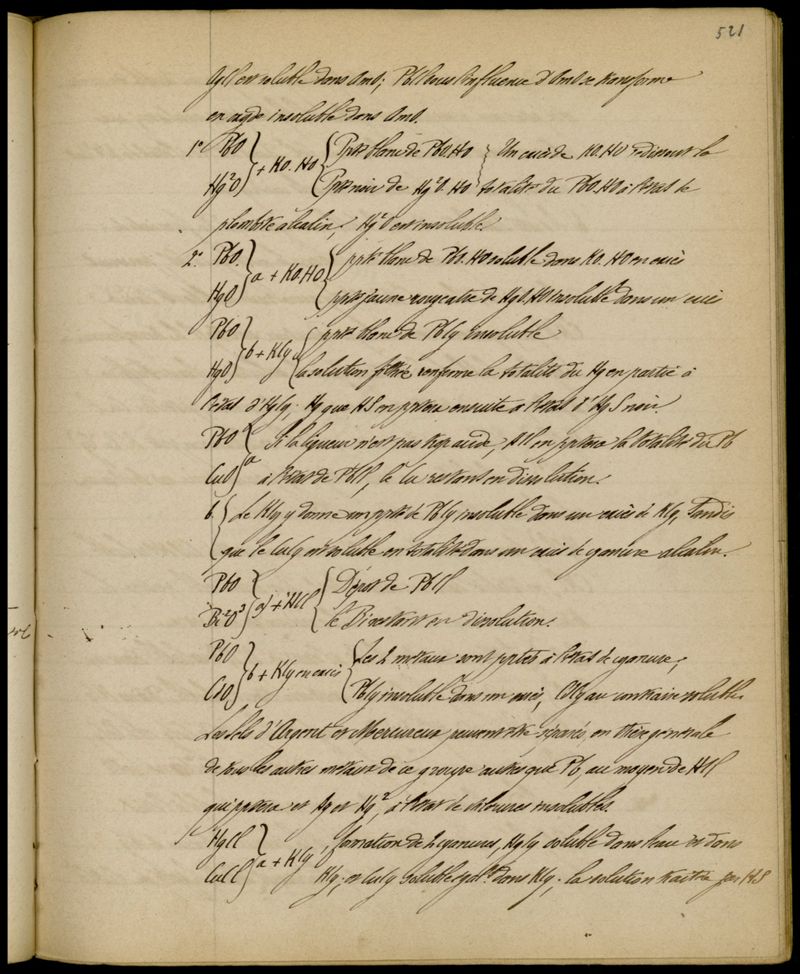 521
AgCl est soluble dans AmO; PbCl sous l'influence d'AmO se transforme
en oxyde insoluble dans AmO.
1° PbO } + KO.HO { Ppté blanc de PbO.HO } Un excès de KO.HO dissout la
Hg²O } { Ppté noir de Hg²O.HO } totalité du PbO.HO à l'état de
plombite alcalin, Hg²O est insoluble.
2° PbO. } a + KO.HO { ppté blanc de PbO.HO soluble dans KO.HO en excès
HgO } { ppté jaune rougeatre de HgO.HO insoluble dans un excès
PbO } b + KCy { ppté blanc de PbCy insoluble
HgO } { la solution filtrée renferme la totalité du Hg en partie à
l'état d'HgCy. Hg que HS en pptera ensuite à l'état d'HgS noir.
PbO } a Si la liqueur n'est pas trop acide, HCl en pptera la totalité du Pb
CuO } à l'état de PbCl, le Cu restant en dissolution.
b { Le KCy y donne un ppté de PbCy insoluble dans un excès de KCy, Tandis
{ que le CuCy est soluble en totalité dans un excès de cyanure alcalin.
PbO } a) + HCl { Dépôt de PbCl
Bi²O³ } { le Bi restant en dissolution.
PbO } b + KCy en excès { Les 2 métaux sont pptés à l'état de cyanure;
CdO } { PbCy insoluble dans un excès, CdCy au contraire soluble.
Les sels d'Argent et Mercureux peuvent être séparés, en thèse générale
de tous les autres métaux de ce groupe autres que Pb, au moyen de HCl
qui pptera et Ag et Hg², à l'état de chlorures insolubles.
HgCl } a + KCy, formation de 2 cyanures, HgCy soluble dans l'eau et dans
CuCl } KCy, et CuCy soluble egalt dans KCy; la solution traitée par HS